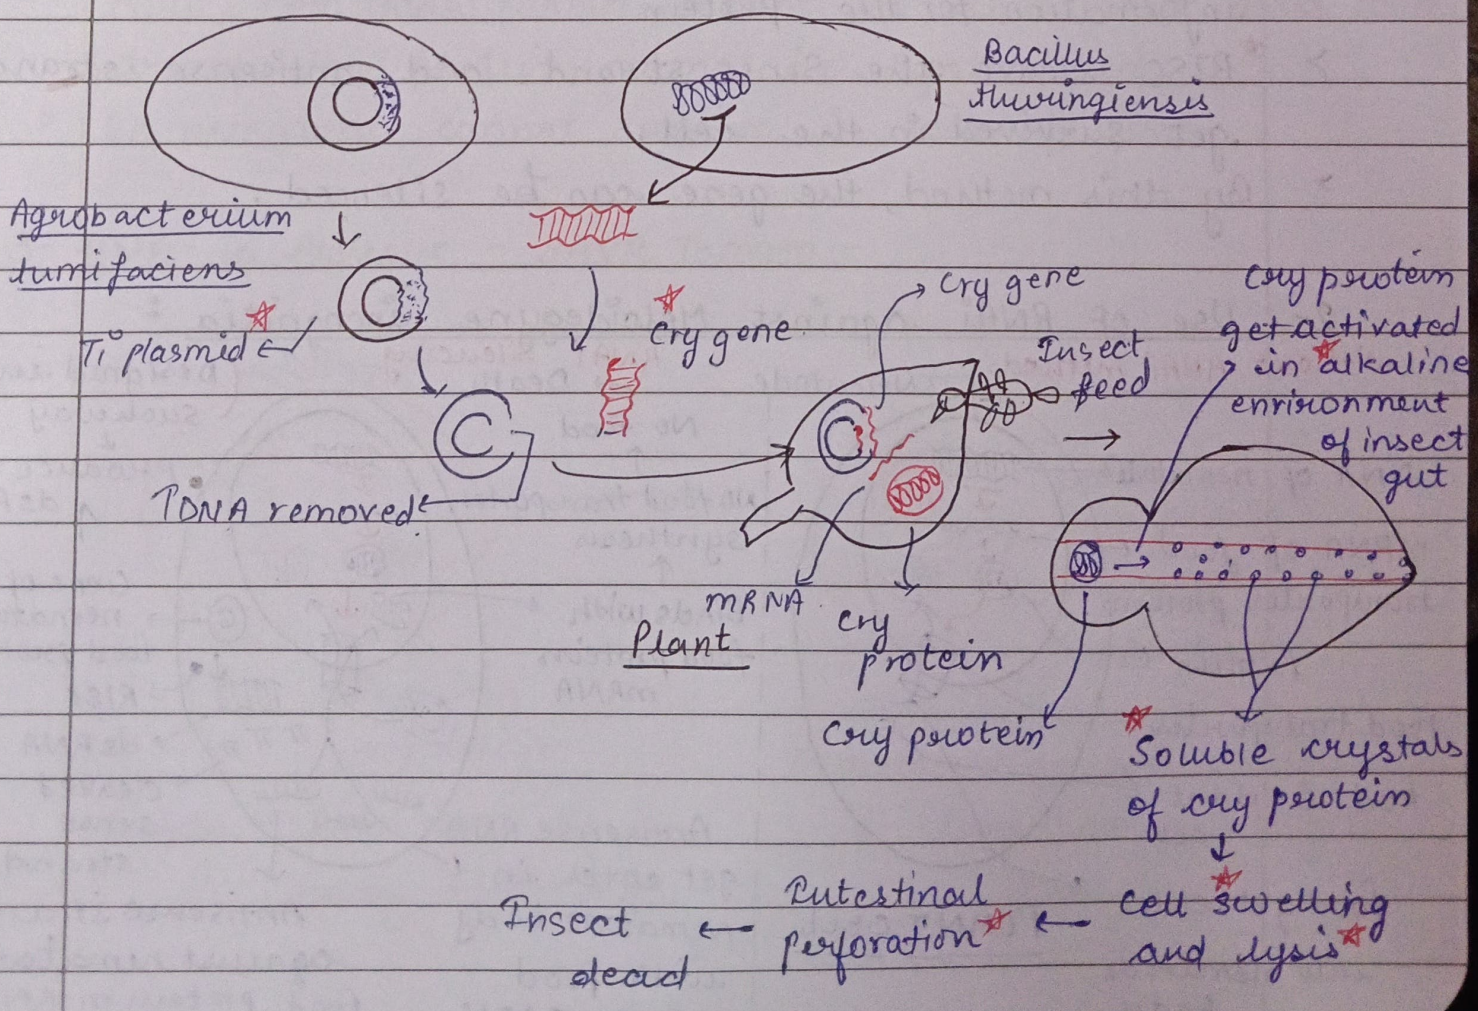 Bacillus
thuringiensis
Agrobacterium
tumifaciens
Ti plasmid
Cry gene
Cry gene
Insect
feed
Cry protein
get activated
in alkaline
environment
of insect
gut
TDNA removed
mRNA
Plant
Cry
protein
Cry protein
Soluble crystals
of cry protein
Cell swelling
and lysis
Intestinal
perforation
Insect
dead